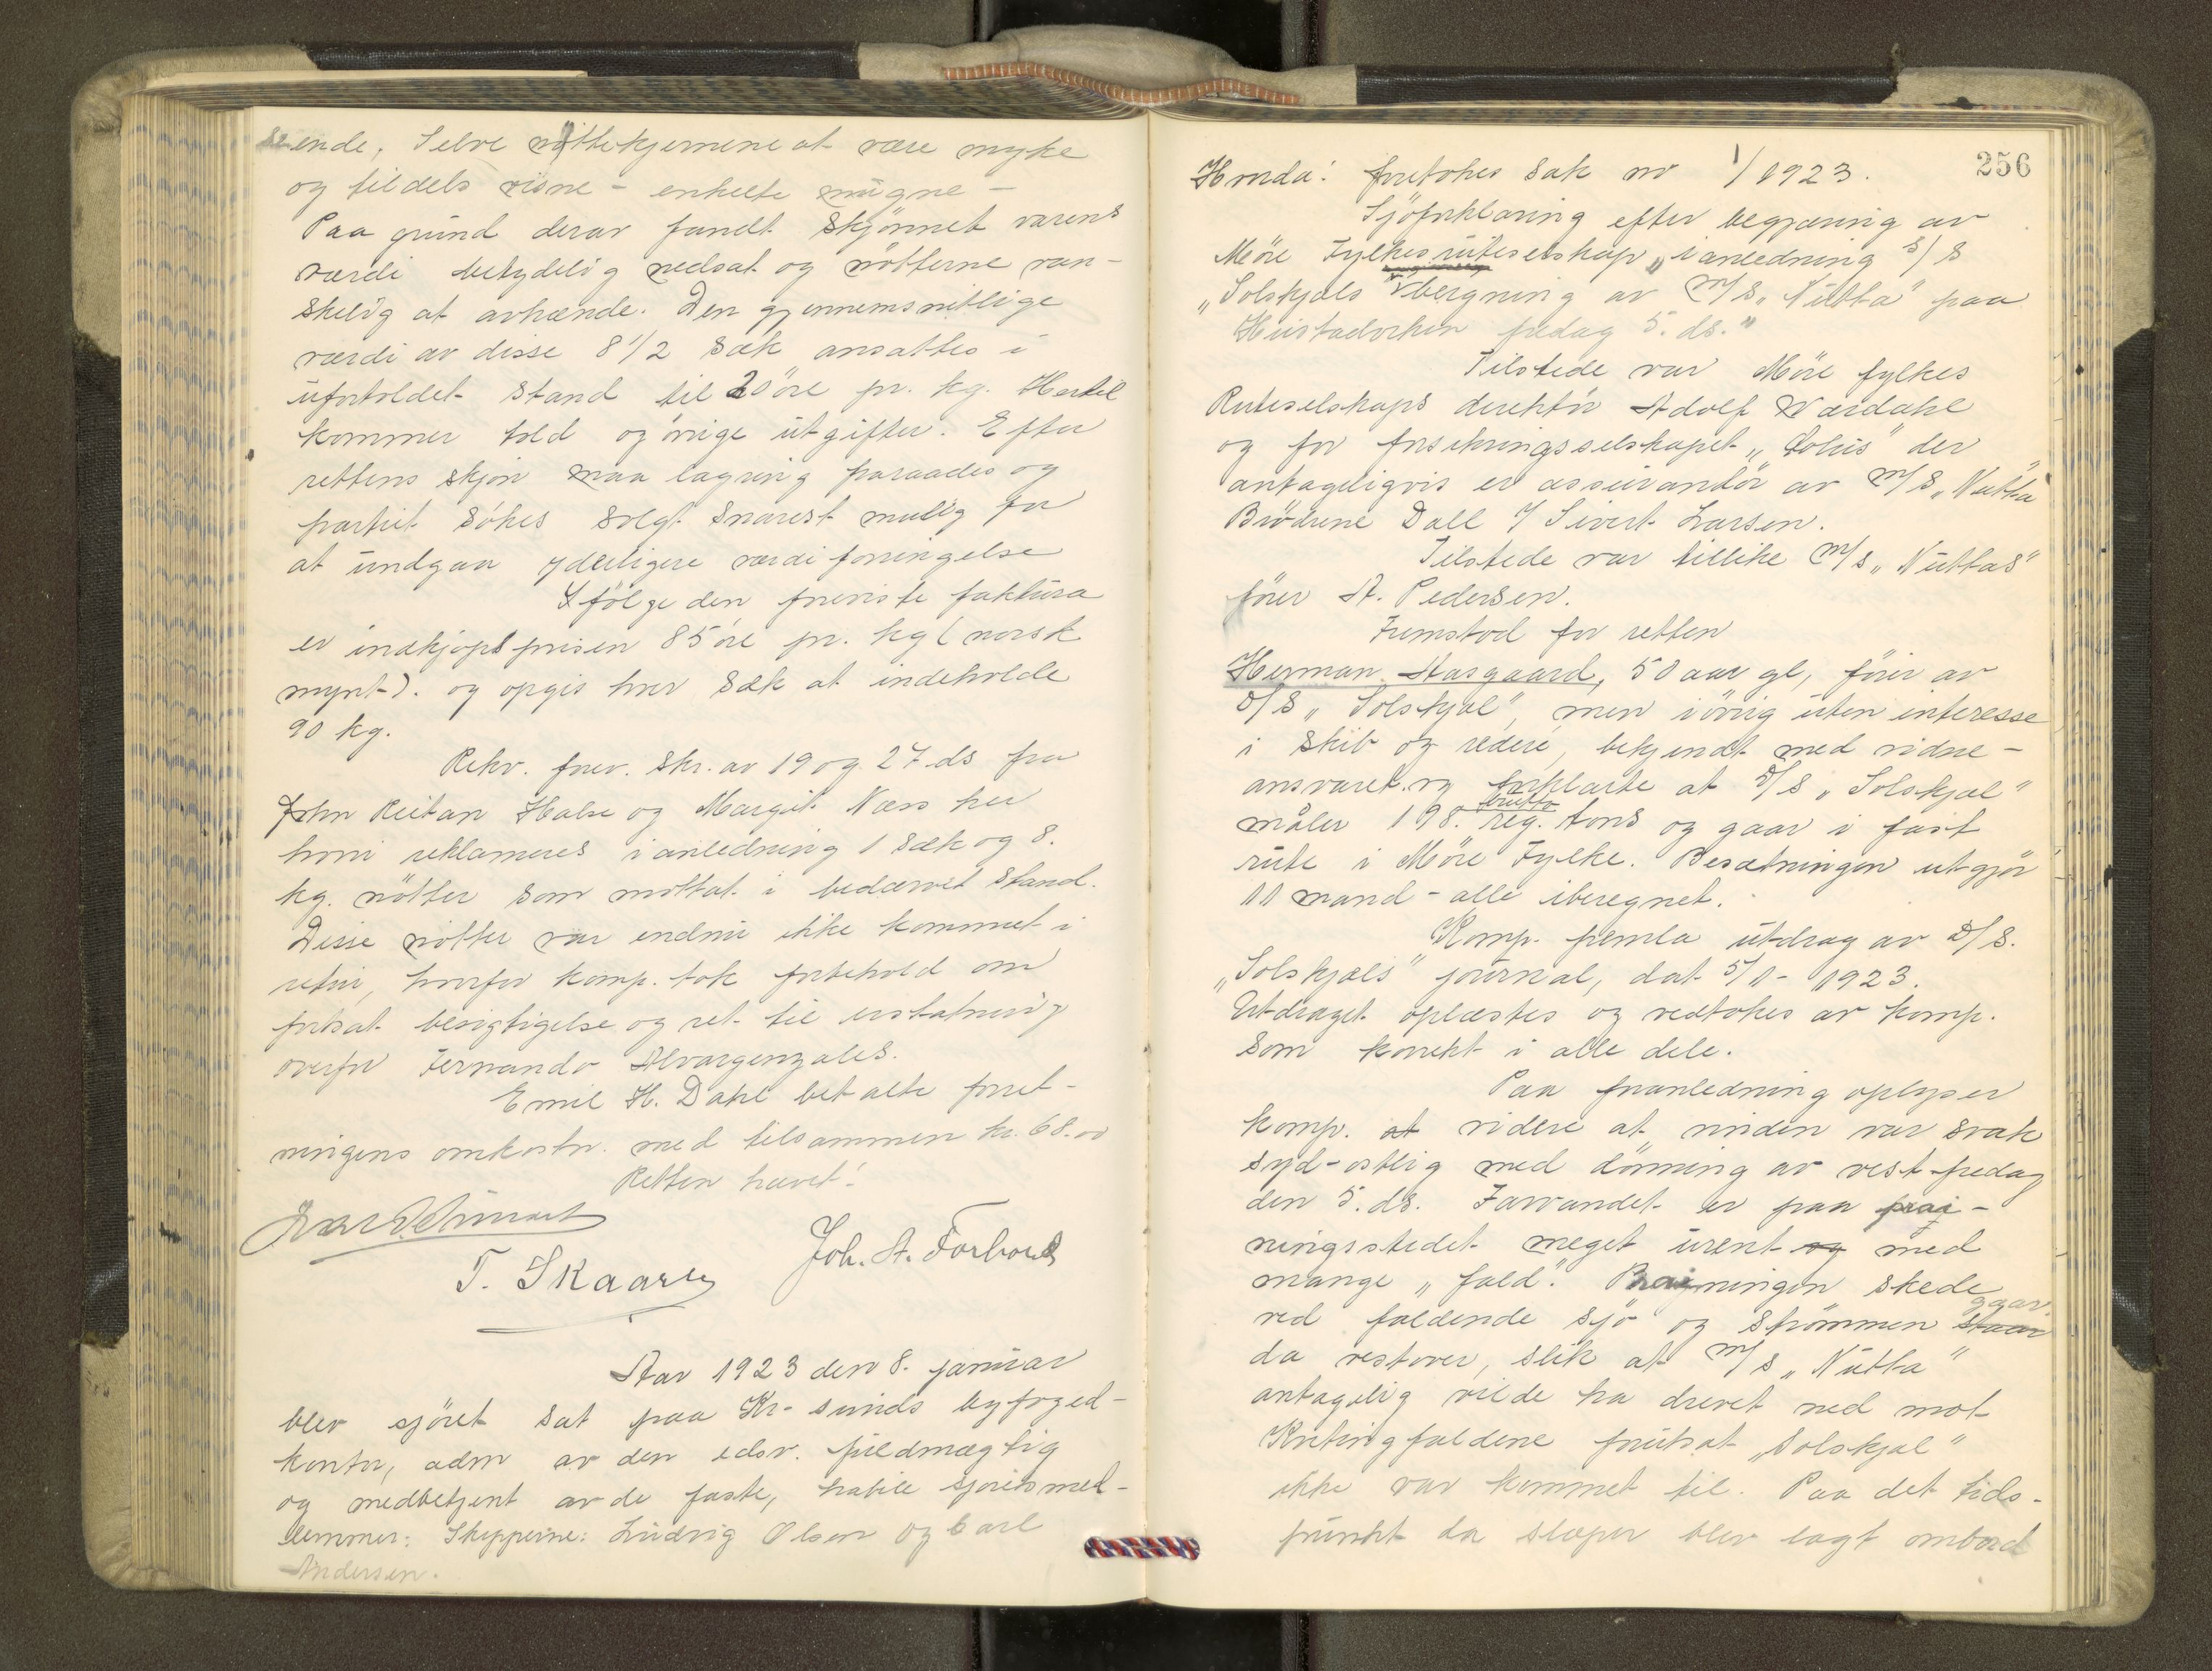 ende, Selve nøttekjernene at være myke
og tildels visne - enkelte mugne -
Paa grund derav fandt skjønnet varens
værdi betydelig nedsat og nötterne van-
skelig at avhænde. Den gjennemsnitlige
værdi av disse 8 1/2 sæk ansattes i
ufortoldet stand til 20 öre pr. kg. Hertil
kommer told og övrige utgifter. Efter
rettens skjön maa lagring fraraades og
partiet sökes solgt snarest mulig for
at undgaa yderligere værdiforringelse
Ifölge den foreviste faktura
er indkjöpsprisen 85 öre pr. kg (norsk
mynt). og opgis hver sæk at indeholde
90 kg.
Rekv. frev. skr. av 19 og 27 ds fra
John Reitan Halse og Margit Næss her
hvori reklameres i anledning 1 sæk og 8.
kg. nötter som mottat i bedærvet stand.
Disse nötter var endnu ikke kommet i
retur, hvorfor komp. tok forbehold om
fortsat besigtigelse og ret til erstatning
overfor Fernando Alvargonzales.
Emil H. Dahl betalte forret-
ningens omkostn. med tilsammen kr. 68.00
Retten hævet!
T. Skaar Joh. A. Forbord
Aar 1923 den 8. januar
blev sjöret sat paa Kr-sunds byfoged-
kontor, adm av den edsv. fuldmægtig
og medbetjent av de faste, habile sjöretsmed-
lemmer: Skipperne: Ludvig Olsen og Carl
Andersen.
256
Hvorda: foretokes sak nr 1/1923.
Sjöforklaring efter begjæring av
Möre Fylkes ruteselskap „i anledning S/S
„Solskjels bergning av M/S „Nutta" paa
Hustadviken fredag 5. ds."
Tilstede var Möre fylkes
Ruteselskaps direktör Adolf Værdahl
og for forsikringsselskapet „Æolus" der
antageligvis er assurandör av M/S „Nutta"
Brödrene Dall v/ Sivert Larsen.
Tilstede var tillike M/S „Nuttas"
förer A. Pedersen.
Fremstod for retten
Herman Aasgaard, 50 aar gl, förer av
D/S „Solskjel", men iövrig uten interesse
i skib og rederi, bekjendt med vidne-
ansvaret og forklarte at D/S „Solskjel"
måler 198. brutto reg. tons og gaar i fast
rute i Möre Fylke. Besætningen utgjör
11 mand - alle iberegnet.
Komp. fremla utdrag av D/S.
„Solskjels" journal, dat 5/1 - 1923.
Utdraget oplæstes og vedtokes av komp.
som korrekt i alle dele.
Paa foranledning oplyser
komp. at videre at vinden var svak
syd-ostlig med dönning av vest fredag
den 5. ds. Farvandet er paa prai-
ningsstedet meget urent og med
mange „fald". Prainingen skede
ved faldende sjö og strömmen ggar
da vestover, slik at M/S „Nutta"
antagelig vilde ha drevet ned mot
Kvitingfaldene forutsat „Solskjel"
ikke var kommet til. Paa det tids-
punkt da slæper blev lagt ombord